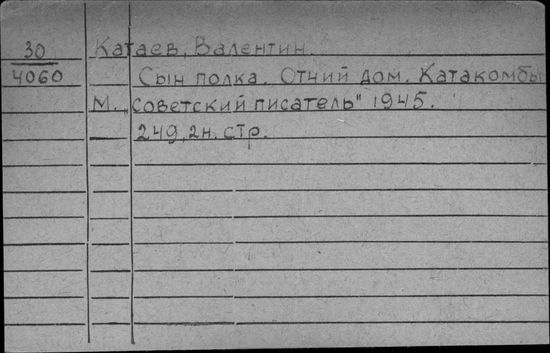 30 Катаев, Валентин.
4060 Сын полка. Отчий дом. Катакомбы
М. „Советский писатель" 1945.
249, 2н. стр.